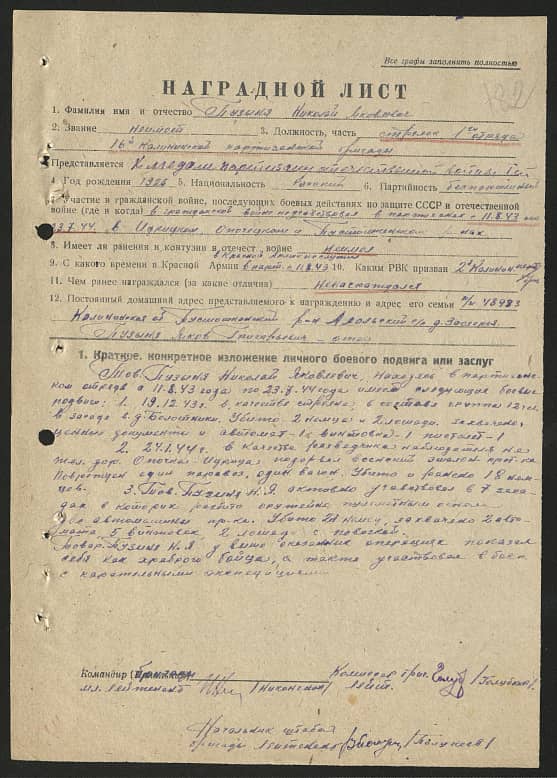 Все графы заполнить полностью
НАГРАДНОЙ ЛИСТ
1. Фамилия имя и отчество Пузыня Николай Яковлевич
2. Звание неимеет 3. Должность, часть стрелок 1го отряда
16й Калининской партизанской бригады
Представляется К медали партизану отечественной войны
4. Год рождения 1926 5. Национальность 6. Партийность беспартийный
7. Участие в гражданской войне, последующих боевых действиях по защите СССР и отечественной
войне (где и когда) в гражданской войне не участвовал в партизанах с 11.8.43 по
23.7.44. в Идрицком, Опочецком и Пустошкинском р-нах
8. Имеет ли ранения и контузии в отечест. войне неимел
9. С какого времени в Красной Армии в парт. с 11.8.43 10. Каким РВК призван
11. Чем ранее награждался (за какие отличия) Ненаграждался
12. Постоянный домашний адрес представляемого к награждению и адрес его семьи
Калининская об Пустошкинский р-он Алольский с/с д.
Пузыня Яков Григорьевич - отец
1. Краткое, конкретное изложение личного боевого подвига или заслуг
Тов. Пузыня Николай Яковлевич, находясь в партизан-
ском отряде с 11.8.43 года по 23.7.44 года имеет следующие боевые
подвиги: 1. 19.12.43 г. в качестве стрелка, в составе группы 12 чел.
в засаде в д. Болотники. Убито 2 немца и 2 лошади. захвачено,
ценных документа и автомат-1 винтовка-1 пистолет-1
2. 24.1.44 г. в качестве разведчика наблюдателя на
жел. дор. Опочка-Идрица подорвал воинский эшелон пр-ка.
Поврежден один паровоз, один вагон. Убито и ранено 18 нем-
цев. 3. Тов. Пузыня Н.Я. активно участвовал в 7 заса-
дах в которых разбито оружейно пулеметным огнем
автомашины пр-ка. Убито немец, захвачено 2 авто-
мата, 5 винтовок, 2 лошади с повозкой.
Товар. Пузыня Н.Я. у выше указанных операциях показал
себя как храброго бойца, а также участвовал в боях
с карательными экспедициями
Командир бригады
мл. лейтенант
Комиссар бриг.
Начальник штаба
бригады лейтенант